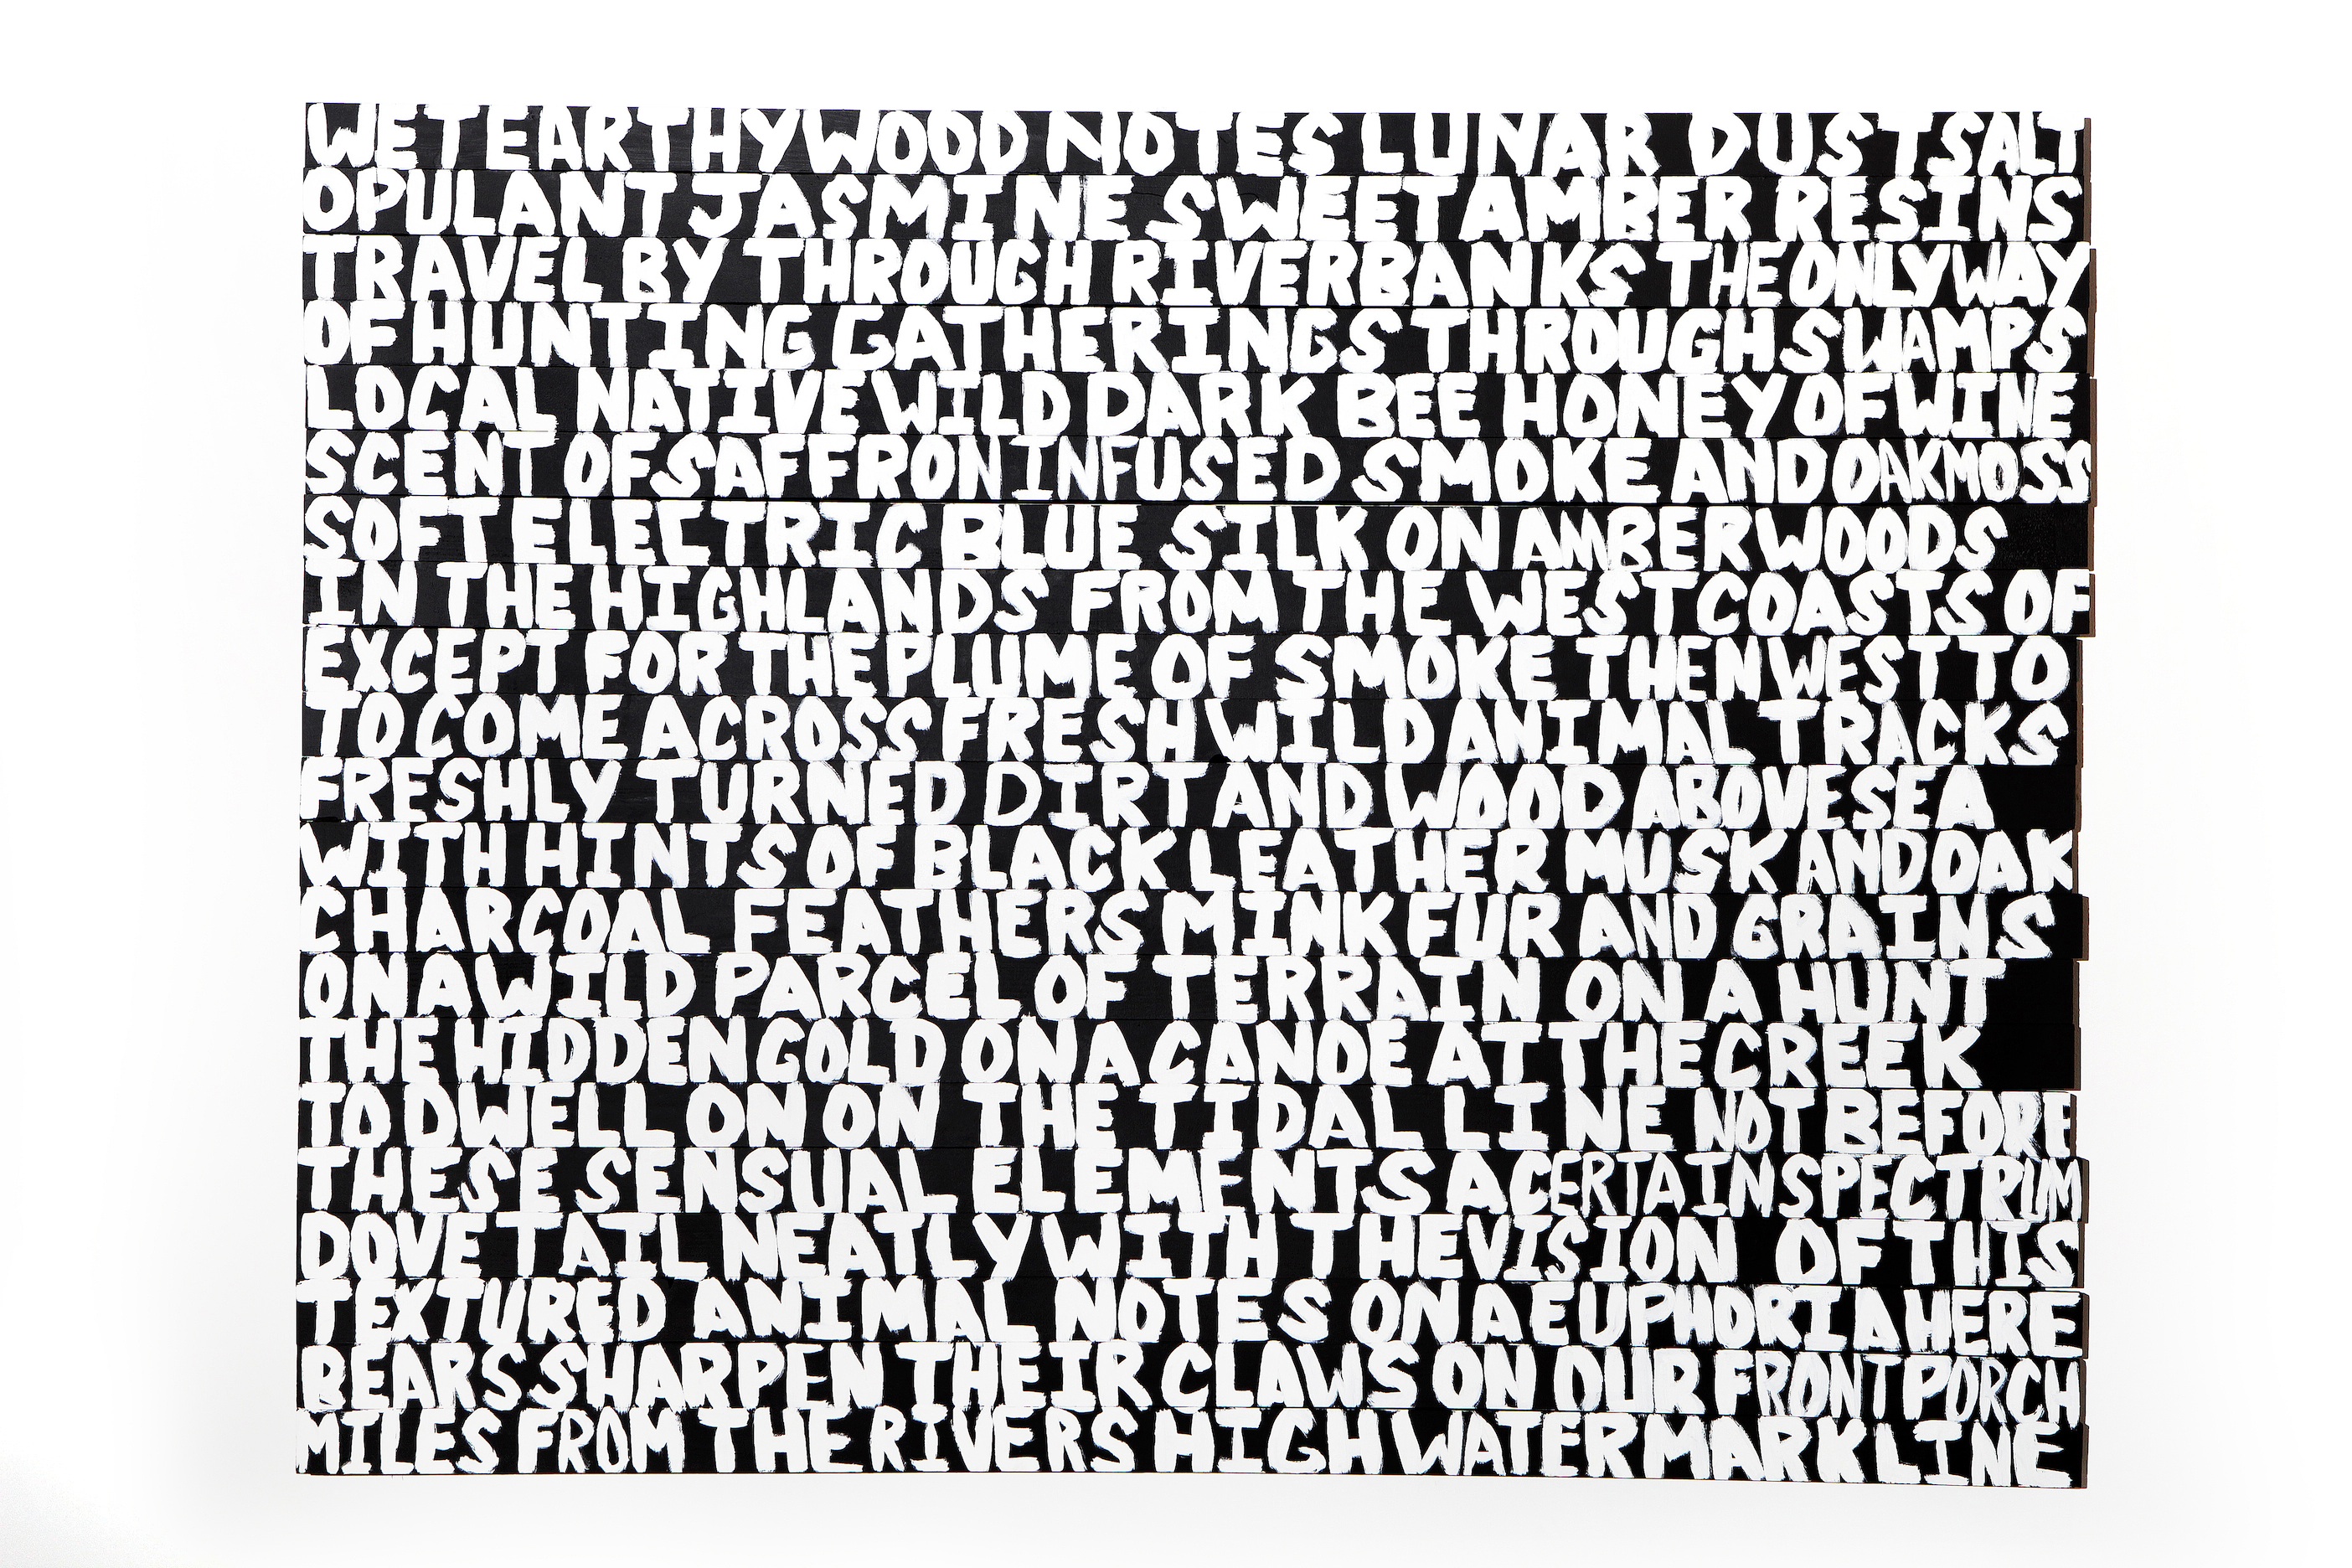 WET EARTHY WOOD NOTES LUNAR DUST SALT
OPULANT JASMINE SWEET AMBER RESINS
TRAVEL BY THROUGH RIVERBANKS THE ONLY WAY
OF HUNTING GATHERINGS THROUGH SWAMPS
LOCAL NATIVE WILD DARK BEE HONEY OF WINE
SCENT OF SAFFRON INFUSED SMOKE AND OAKMOSS
SOFT ELECTRIC BLUE SILK ON AMBERWOODS
IN THE HIGHLANDS FROM THE WEST COASTS OF
EXCEPT FOR THE PLUME OF SMOKE THEN WEST TO
TO COME ACROSS FRESH WILD ANIMAL TRACKS
FRESHLY TURNED DIRT AND WOOD ABOVE SEA
WITH HINTS OF BLACK LEATHER MUSK AND OAK
CHARCOAL FEATHERS MINK FUR AND GRAINS
ON A WILD PARCEL OF TERRAIN ON A HUNT
THE HIDDEN GOLD ON A CANOE AT THE CREEK
TO DWELL ON ON THE TIDAL LINE NOT BEFORE
THESE SENSUAL ELEMENTS A CERTAIN SPECTRUM
DOVETAIL NEATLY WITH THE VISION OF THIS
TEXTURED ANIMAL NOTES ON A EUPHORIA HERE
BEARS SHARPEN THEIR CLAWS ON OUR FRONT PORCH
MILES FROM THE RIVERS HIGH WATER MARK LINE